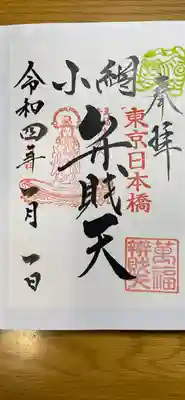 奉拝
東京日本橋
小網
弁財天
萬福
辨財天
令和四年一月一日